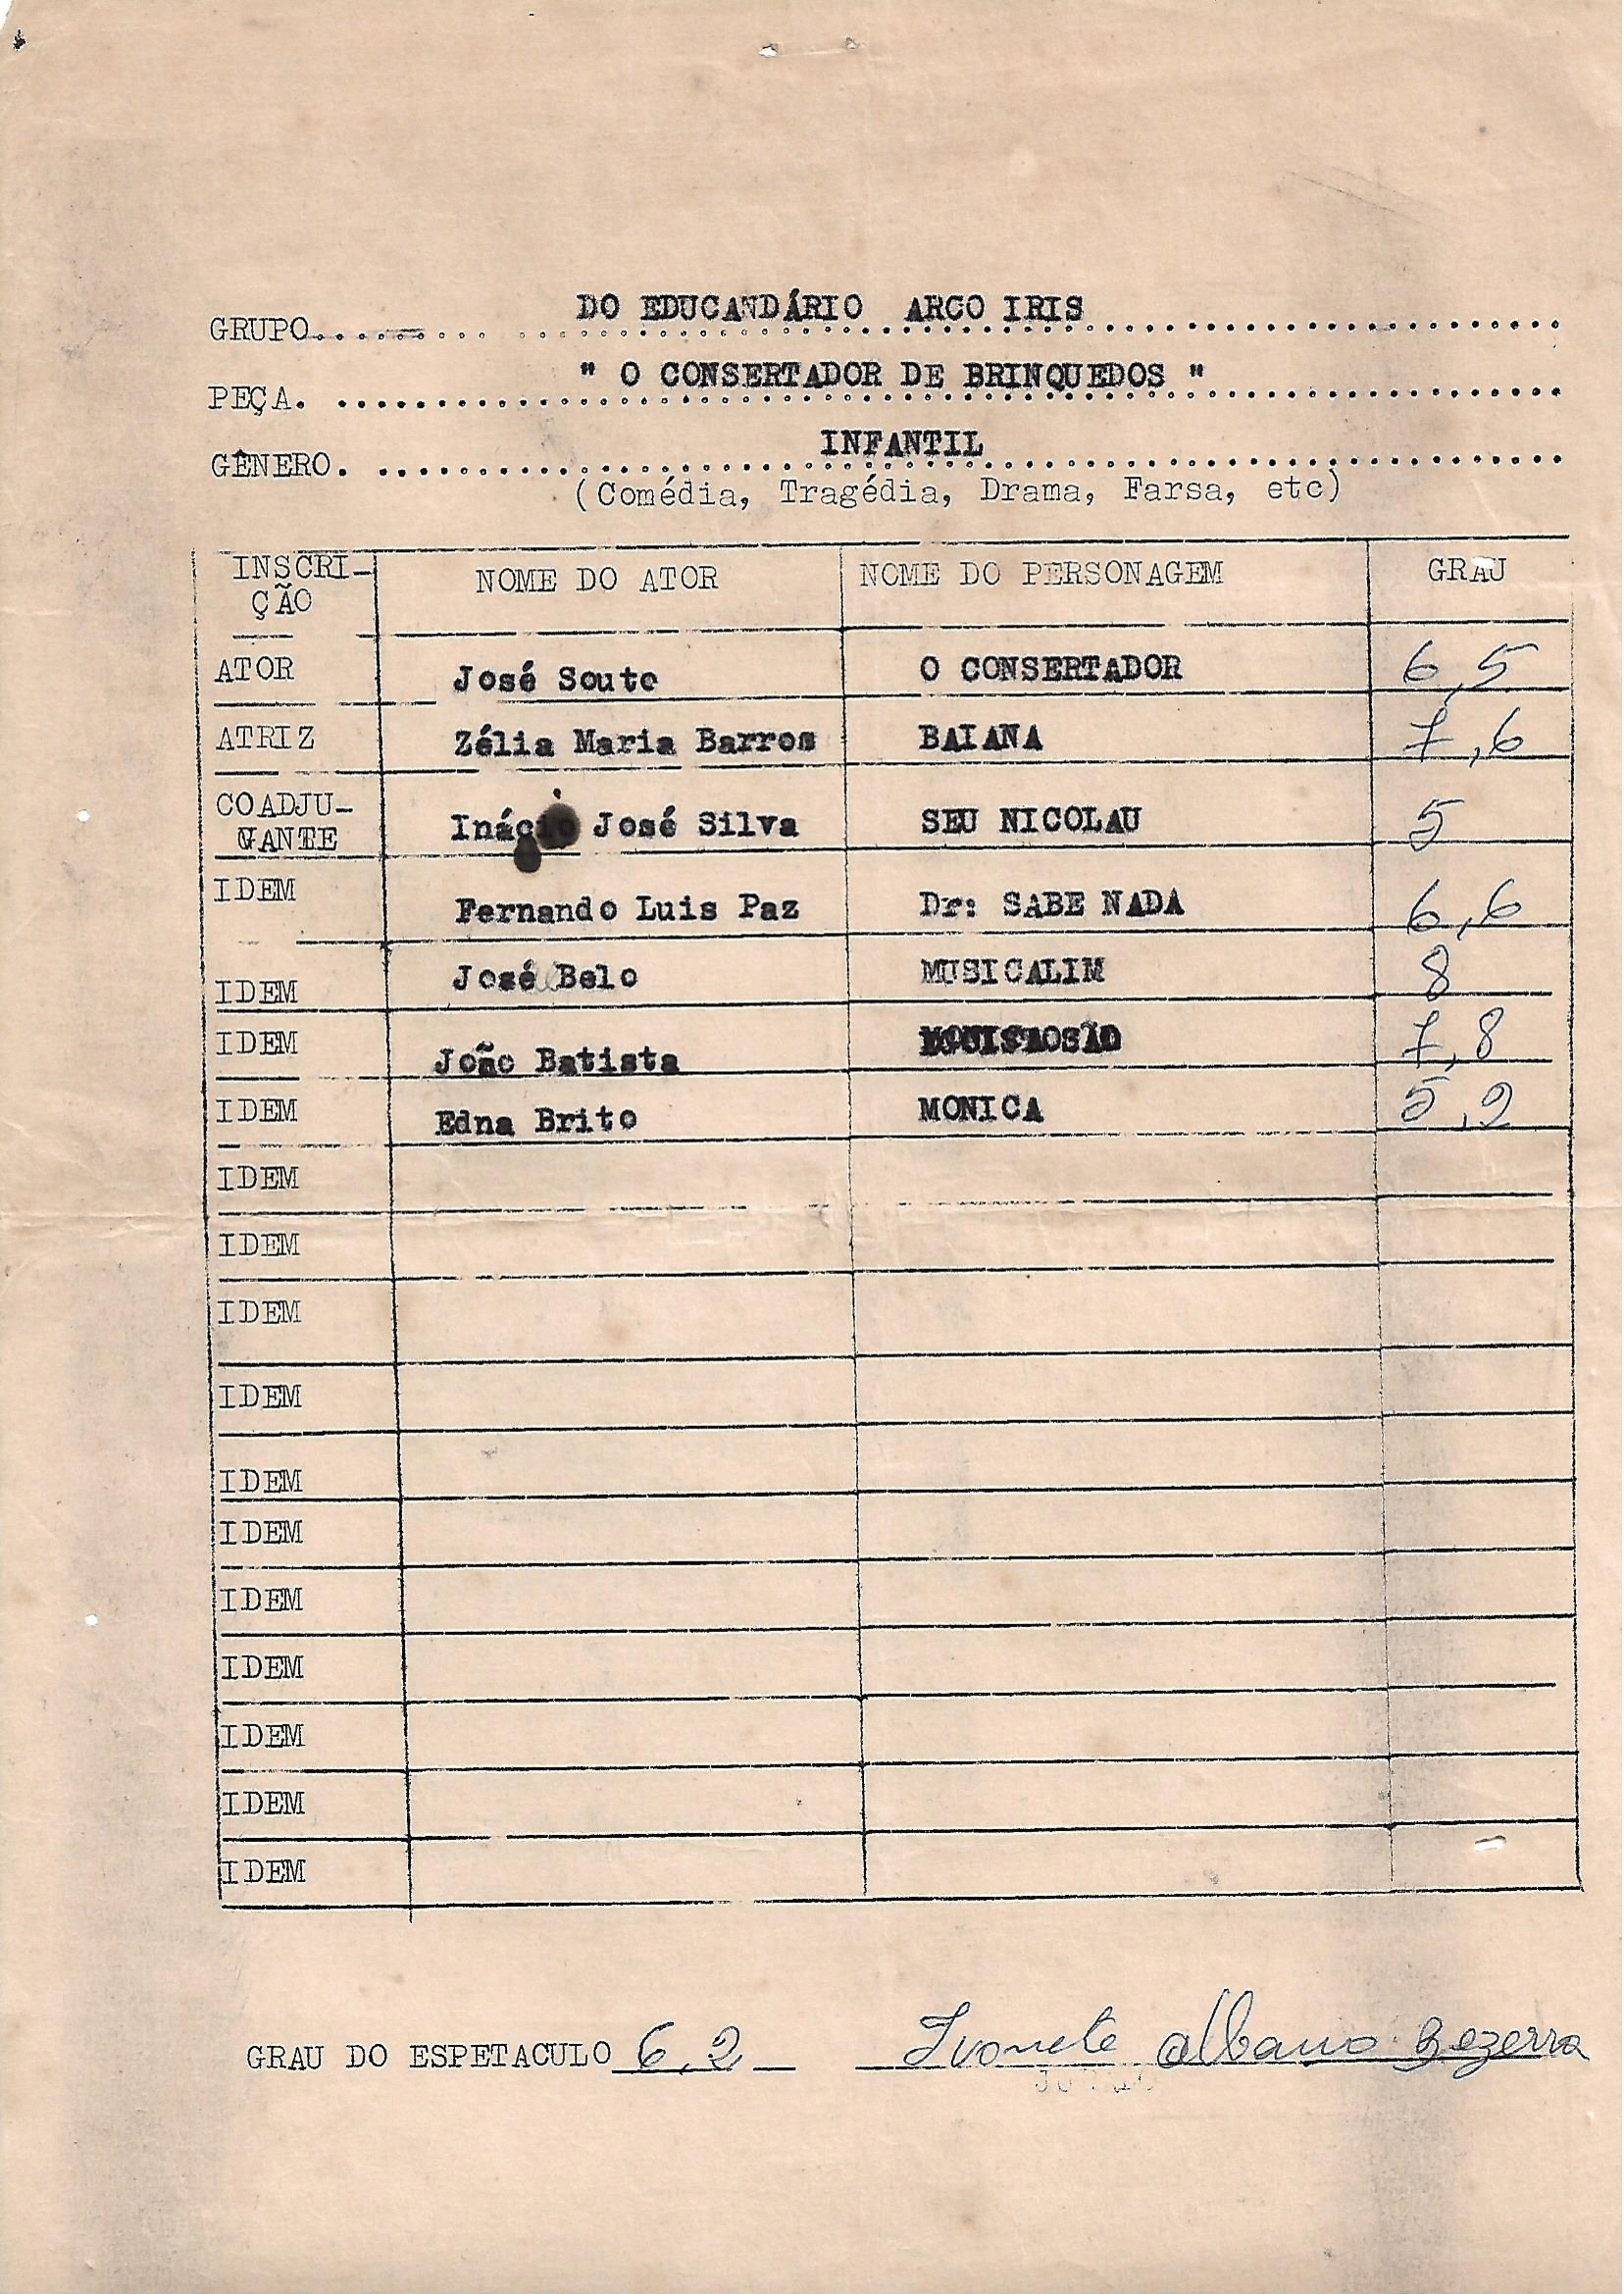 DO EDUCANDÁRIO ARCO IRIS
GRUPO
" O CONSERTADOR DE BRINQUEDOS "
PEÇA.
INFANTIL
GÊNERO.
(Comédia, Tragédia, Drama, Farsa, etc)
INSCRI- NOME DO ATOR NOME DO PERSONAGEM GRAU
ÇÃO
ATOR José Souto O CONSERTADOR 6,5
ATRIZ Zélia Maria Barros BAIANA 7,6
COADJU-
VANTE Inácio José Silva SEU NICOLAU 5
IDEM Fernando Luis Paz Dr: SABE NADA 6,6
IDEM José Belo MUSICALIM 8
IDEM João Batista 7,8
IDEM Edna Brito MONICA 5,2
IDEM
IDEM
IDEM
IDEM
IDEM
IDEM
IDEM
IDEM
IDEM
IDEM
IDEM
GRAU DO ESPETACULO 6,2 Ivonete Albano Bezerra